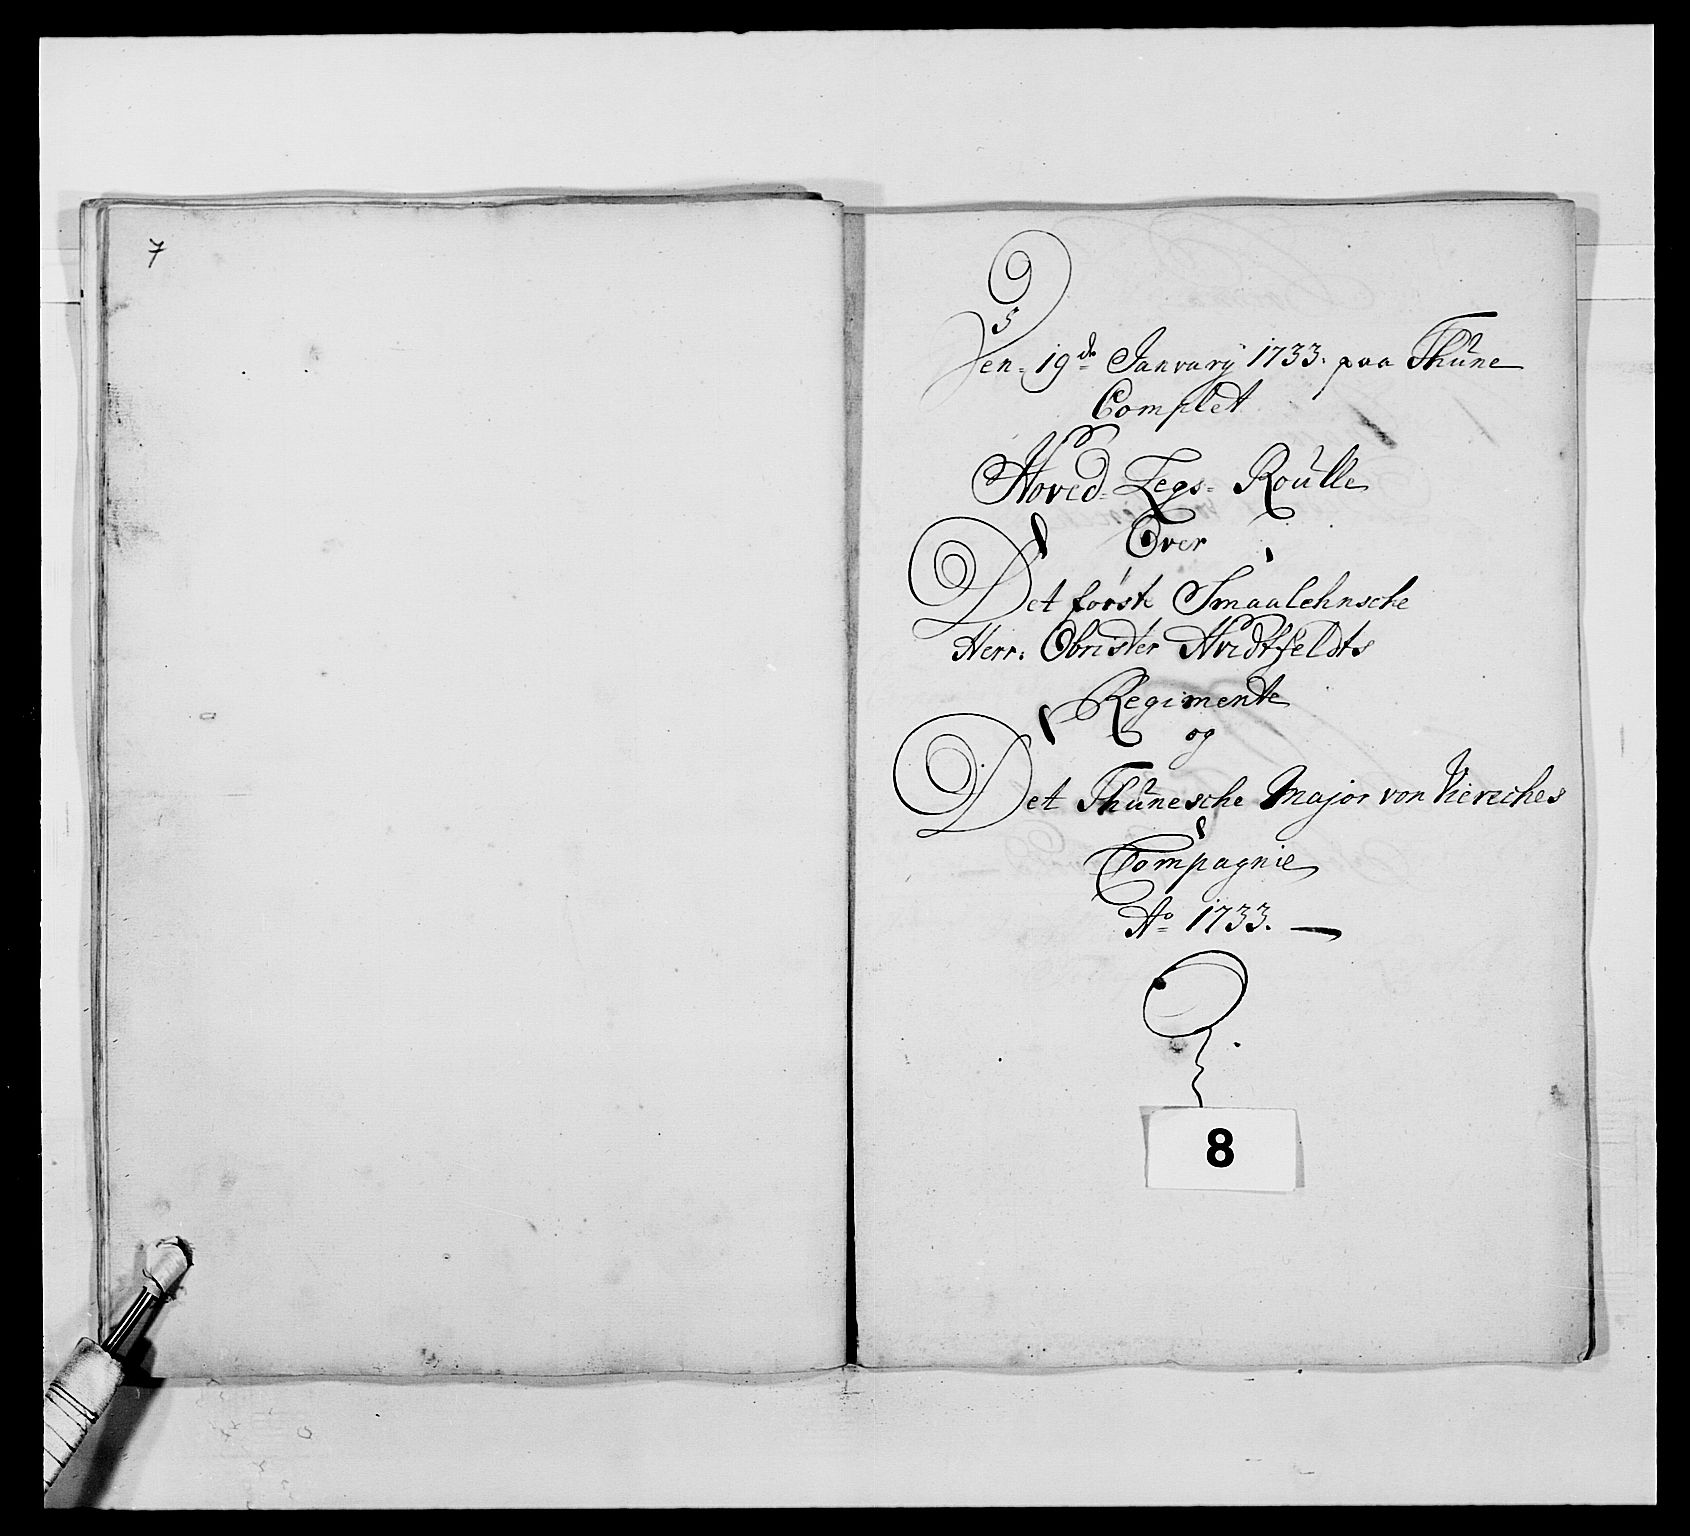 7
Den 19de January 1733. paa Thune
Complet
Hoved-Legs-Roulle
Over
Det første Smaalehnsche
Herr: Obrister Hvidtfeldts
Regimente
og
Det Thunesche Major von Viereches
Compagnie
Ao 1733.
8